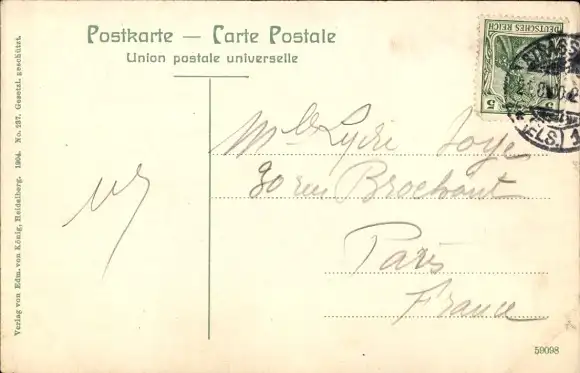 Postkarte — Carte Postale
Union postale universelle
DEUTSCHES REICH
5 5
STRASS
(ELS.) 1
Mlle Lydie Joye
30 rue Brochant
Paris
France
Verlag von Edm. von König, Heidelberg. 1904. No. 137. Gesetzl. geschützt.
59098